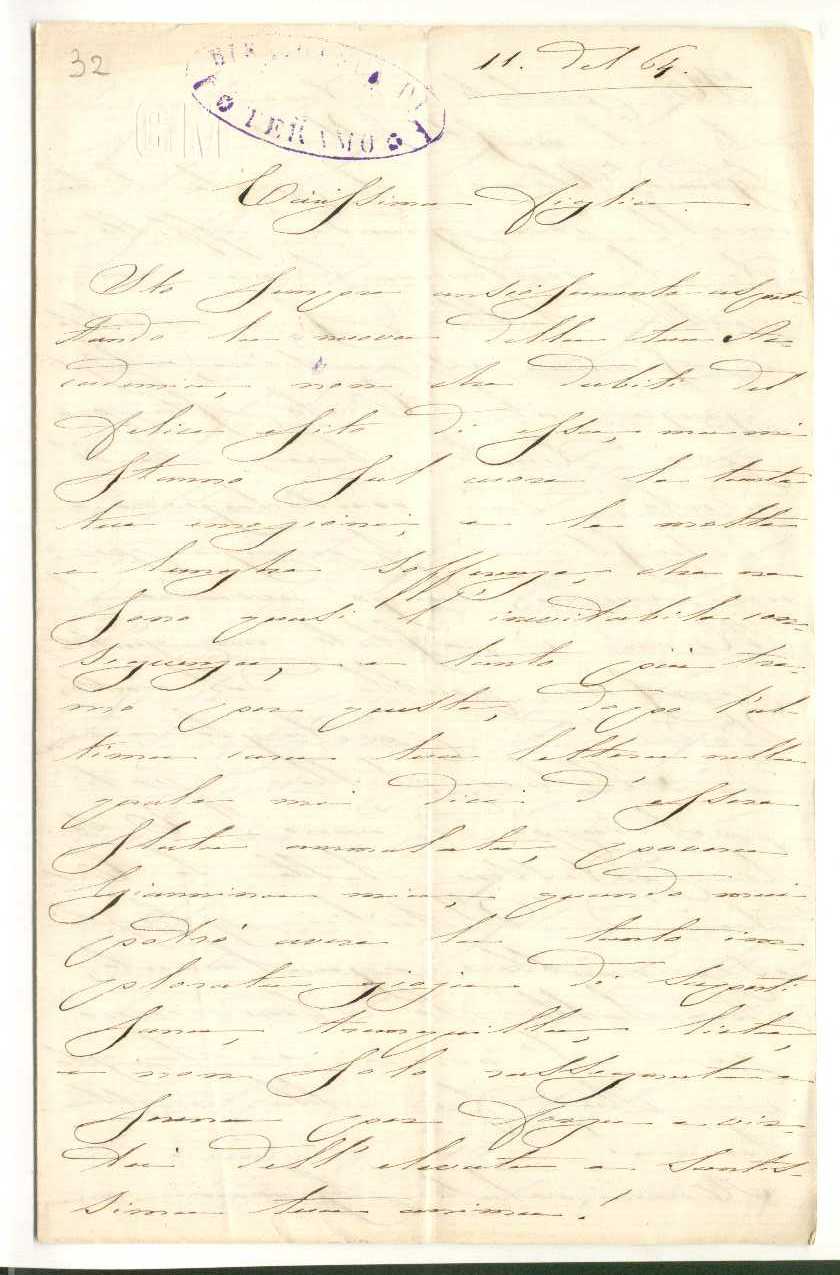 32
11. del 64.
TERAMO
GM
Carissima figlia
Sto sempre ansiosamente aspet-
tando la nuova della tua Ac-
cademia, non che dubiti del
felice esito di essa, ma mi
stanno sul cuore le tante
tue emozioni, e le molte
e lunghe sofferenze, che ne
sono quasi l'inevitabile con-
seguenza, e tanto più tre-
mo per queste, dopo l'ul-
tima cara tua lettera nella
quale mi dici d'essere
stata ammalata, povera
Giannina mia, quando mai
potrò avere la tanto im-
plorata gioja di saperti
sana, tranquilla, lieta,
e non solo rassegnata e
serena per forza e vir-
tù dell'elevata e santis-
sima tua anima!